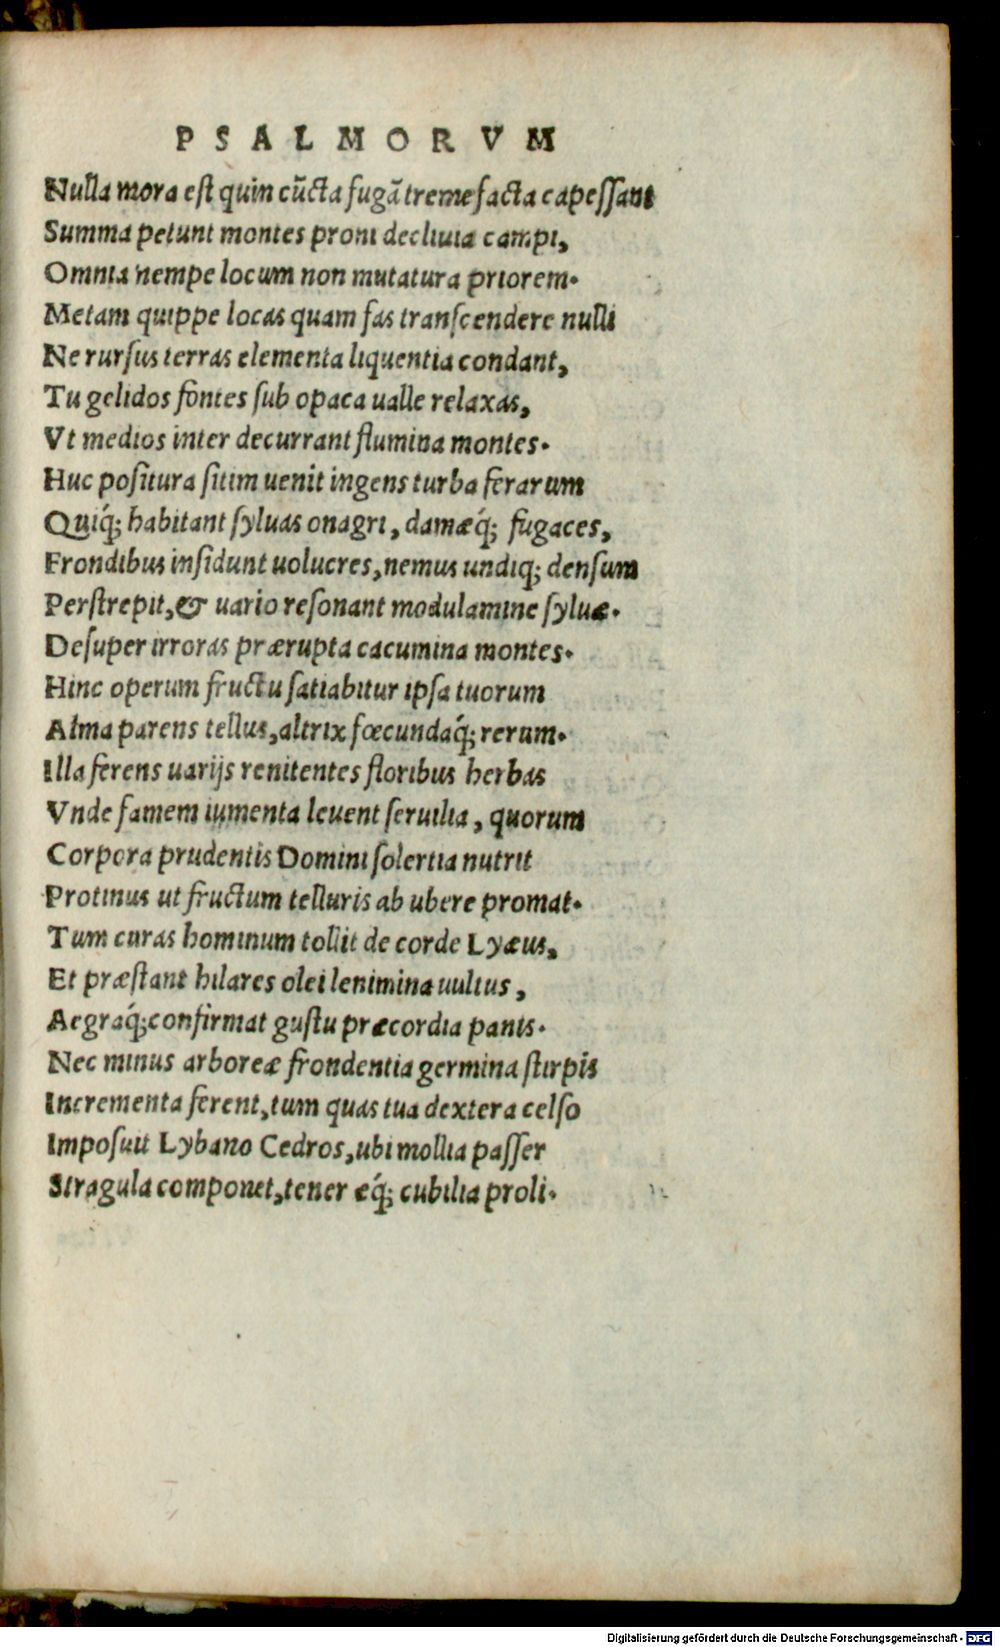 PSALMORVM
Nulla mora est quin cūcta fugā tremefacta capessant
Summa petunt montes proni decliuia campi,
Omnia nempe locum non mutatura priorem.
Metam quippe locas quam fas transcendere nulli
Ne rursus terras elementa liquentia condant,
Tu gelidos fontes sub opaca ualle relaxas,
Vt medios inter decurrant flumina montes.
Huc positura sitim uenit ingens turba ferarum
Quiq́; habitant syluas onagri, damæq́; fugaces,
Frondibus insidunt uolucres, nemus undiq; densum
Perstrepit, & uario resonant modulamine syluæ.
Desuper irroras prærupta cacumina montes.
Hinc operum fructu satiabitur ipsa tuorum
Alma parens tellus, altrix fœcundaq́; rerum.
Illa ferens uarijs renitentes floribus herbas
Vnde famem iumenta leuent seruilia, quorum
Corpora prudentis Domini solertia nutrit
Protinus ut fructum telluris ab ubere promat.
Tum curas hominum tollit de corde Lyæus,
Et præstant hilares olei lenimina uultus,
Aegraq́; confirmat gustu præcordia panis.
Nec minus arboreæ frondentia germina stirpis
Incrementa ferent, tum quas tua dextera celso
Imposuit Lybano Cedros, ubi mollia passer
Stragula componet, tener eq́; cubilia proli.
Digitalisierung gefördert durch die Deutsche Forschungsgemeinschaft - DFG